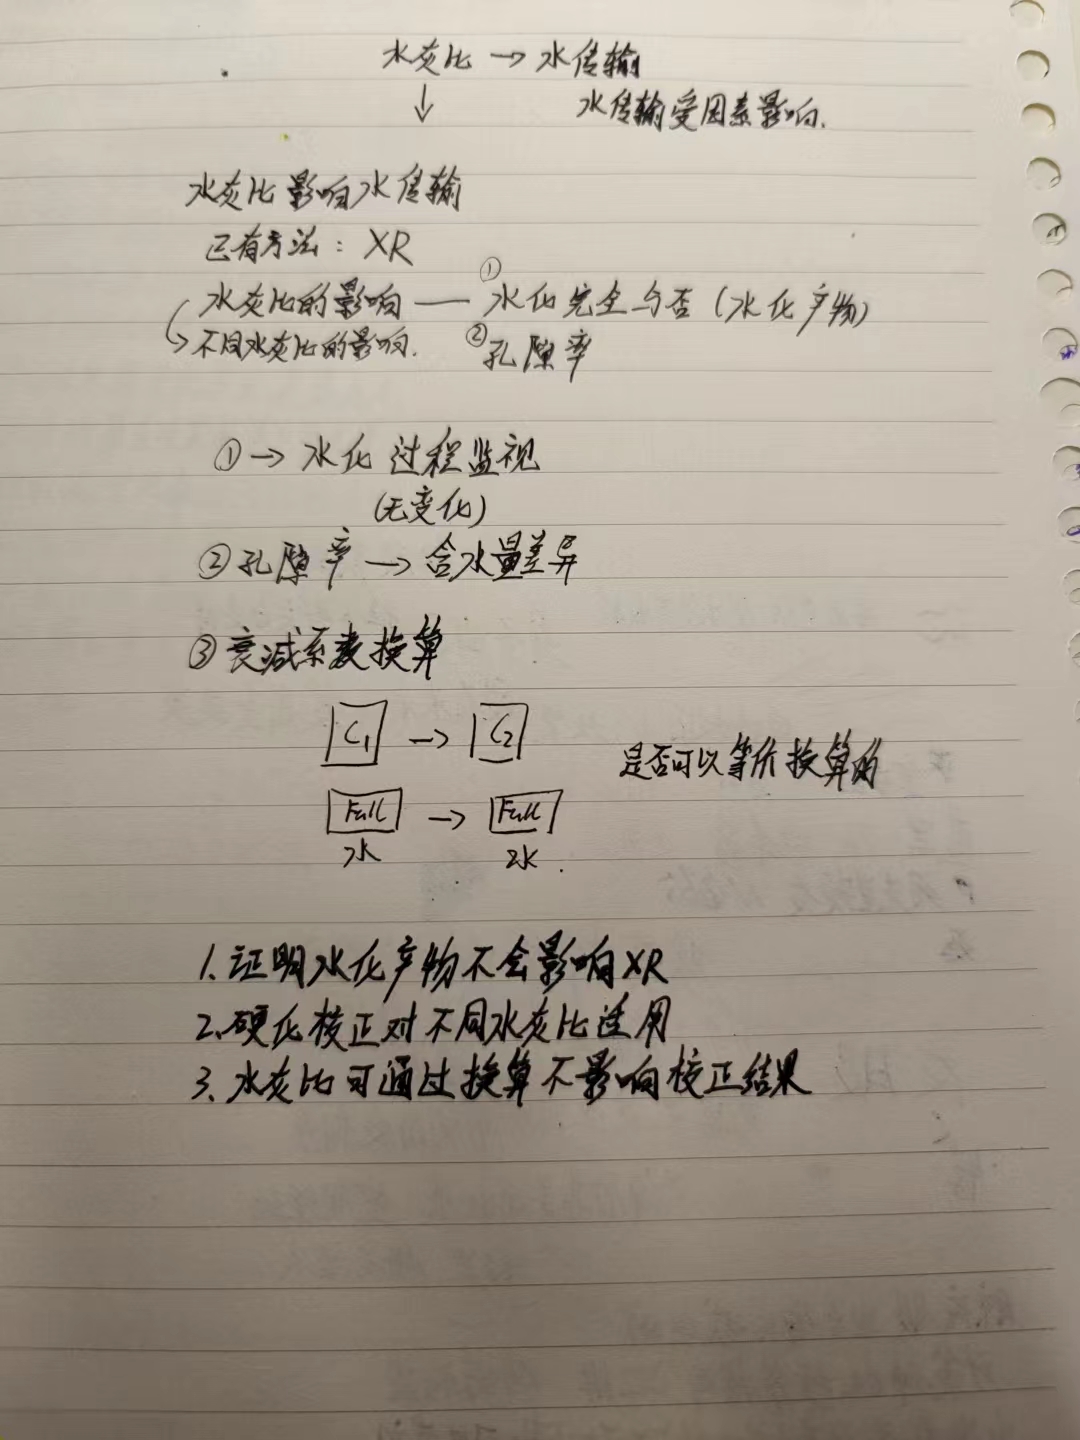 水灰比 → 水传输
↓ 水传输受因素影响.
水灰比影响水传输
已有方法：XR
水灰比的影响 —— ①水化完全与否（水化产物）
↳不同水灰比的影响. ②孔隙率
①→ 水化过程监视
(无变化)
②孔隙率 → 含水量差异
③衰减系数换算
C₁ → C₂
是否可以等价换算的
Full → Full
水 水.
1.证明水化产物不会影响XR
2.硬化校正对不同水灰比适用
3.水灰比可通过换算不影响校正结果